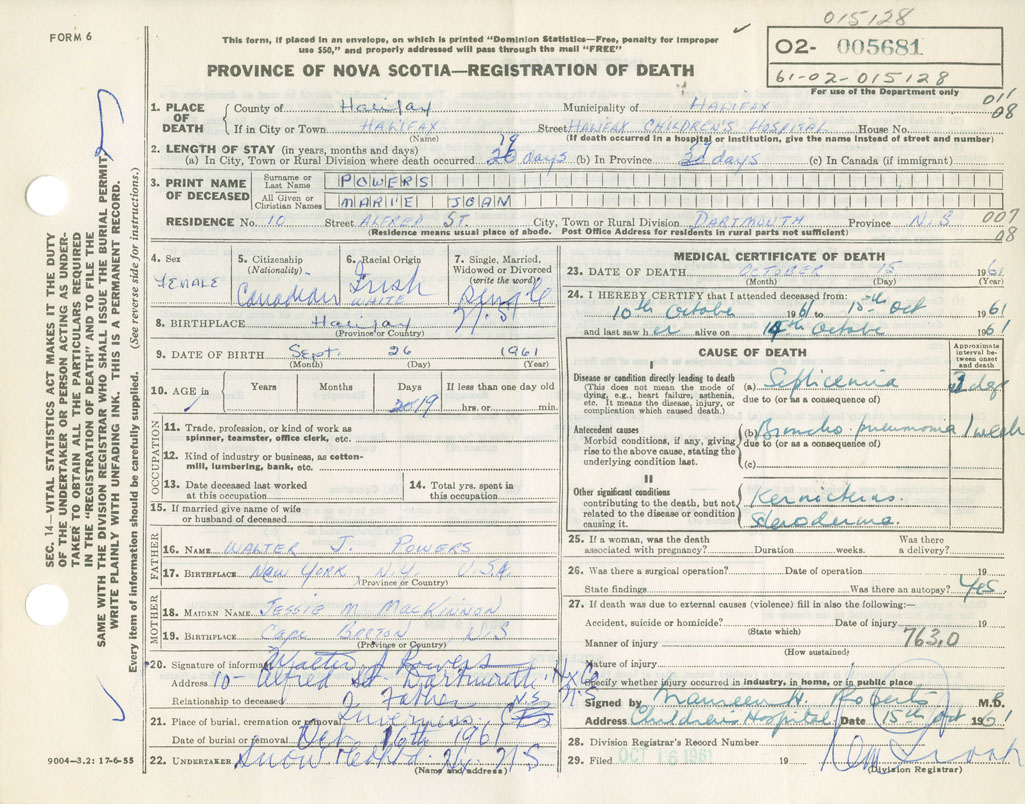 015128
FORM 6
This form, if placed in an envelope, on which is printed "Dominion Statistics—Free, penalty for improper
use $50," and properly addressed will pass through the mail "FREE"
PROVINCE OF NOVA SCOTIA—REGISTRATION OF DEATH
O2- 005681
61-02-015128
For use of the Department only
011
08
1. PLACE OF DEATH
County of Halifax Municipality of HALIFAX
If in City or Town HALIFAX Street HALIFAX CHILDREN'S HOSPITAL House No.
(Name) (If death occurred in a hospital or institution, give the name instead of street and number)
2. LENGTH OF STAY (in years, months and days)
(a) In City, Town or Rural Division where death occurred 19 20 days (b) In Province days (c) In Canada (if immigrant)
3. PRINT NAME OF DECEASED
Surname or Last Name POWERS
All Given or Christian Names MARIE JOAN
RESIDENCE No. 10 Street ALFRED ST. City, Town or Rural Division DARTMOUTH Province N.S
(Residence means usual place of abode. Post Office Address for residents in rural parts not sufficient)
007
08
4. Sex
FEMALE
5. Citizenship
(Nationality)
Canadian
6. Racial Origin
Irish
WHITE
7. Single, Married,
Widowed or Divorced
(write the word)
Single
8. BIRTHPLACE Halifax N.S
(Province or Country)
9. DATE OF BIRTH Sept. 26 1961
(Month) (Day) (Year)
10. AGE in
Years Months Days If less than one day old
20 19 hrs. or min.
OCCUPATION
11. Trade, profession, or kind of work as
spinner, teamster, office clerk, etc.
12. Kind of industry or business, as cotton-
mill, lumbering, bank, etc.
13. Date deceased last worked
at this occupation
14. Total yrs. spent in
this occupation
15. If married give name of wife
or husband of deceased
FATHER
16. NAME WALTER J. POWERS
17. BIRTHPLACE NEW YORK N.Y. U.S.A.
(Province or Country)
MOTHER
18. MAIDEN NAME JESSIE M MACKINNON
19. BIRTHPLACE CAPE BRETON, N.S
(Province or Country)
20. Signature of informant Walter J Powers
Address 10 - Alfred St Dartmouth Hx Co
N.S.
Relationship to deceased Father
21. Place of burial, cremation or removal Inverness, N.S.
Date of burial or removal Oct. 16th 1961
22. UNDERTAKER Snow Hx. N.S
(Name and address)
MEDICAL CERTIFICATE OF DEATH
23. DATE OF DEATH OCTOBER 15 1961
(Month) (Day) (Year)
24. I HEREBY CERTIFY that I attended deceased from:
10th October 1961 to 15th Oct 1961
and last saw her alive on 14th October 1961
CAUSE OF DEATH
Approximate
interval be-
tween onset
and death
I
Disease or condition directly leading to death
(This does not mean the mode of
dying, e.g., heart failure, asthenia,
etc. It means the disease, injury, or
complication which caused death.)
(a) Septicemia days
due to (or as a consequence of)
Antecedent causes
Morbid conditions, if any, giving
rise to the above cause, stating the
underlying condition last.
(b) Broncho-pneumonia 1 week
due to (or as a consequence of)
(c)
II
Other significant conditions
contributing to the death, but not
related to the disease or condition
causing it.
Kernicterus.
Scleroderma.
25. If a woman, was the death
associated with pregnancy? Duration weeks. Was there
a delivery?
26. Was there a surgical operation? Date of operation 19
State findings Was there an autopsy? Yes.
27. If death was due to external causes (violence) fill in also the following:—
Accident, suicide or homicide? Date of injury 19
(State which)
763,0
Manner of injury
(How sustained)
Nature of injury
Specify whether injury occurred in industry, in home, or in public place
Signed by Maureen H. Roberts M.D.
Address Children's Hospital Date 15th Oct 1961
28. Division Registrar's Record Number
29. Filed OCT 16 1961 19
(Division Registrar)
SEC. 14—VITAL STATISTICS ACT MAKES IT THE DUTY
OF THE UNDERTAKER OR PERSON ACTING AS UNDER-
TAKER TO OBTAIN ALL THE PARTICULARS REQUIRED
IN THE "REGISTRATION OF DEATH" AND TO FILE THE
SAME WITH THE DIVISION REGISTRAR WHO SHALL ISSUE THE BURIAL PERMIT
WRITE PLAINLY WITH UNFADING INK. THIS IS A PERMANENT RECORD.
Every item of information should be carefully supplied. (See reverse side for instructions.)
9004—3.2: 17-6-55